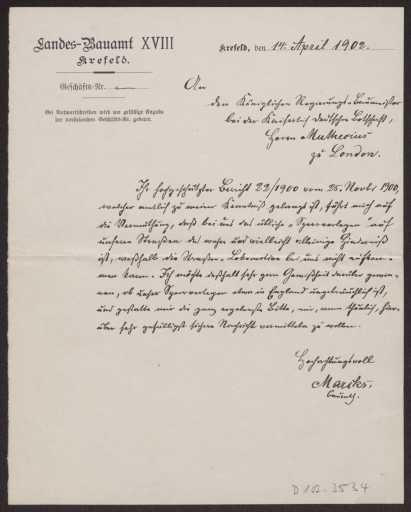 Landes-Bauamt XVIII
Krefeld.
Geschäfts-Nr.
Bei Antwortschreiben wird um gefällige Angabe
der vorstehenden Geschäfts-Nr. gebeten.
Krefeld, den 14. April 1902.
An
den Königlichen Regierungs-Baumeister
bei der Kaiserlich deutschen Botschaft,
Herrn Muthesius
zu London.
Ihr hochgeschätzter Bericht 22/1900 vom 25. Novbr 1900,
welcher amtlich zu meiner Kenntniß gelangt ist, führt mich auf
die Vermuthung, daß bei uns das übliche "Sperrenlegen" auf
unseren Straßen das wahre und vielleicht alleinige Hinderniß
ist, weßhalb die Straßen-Lokomotive bei uns nicht
kann. Ich möchte deßhalb sehr gern Gewißheit darüber gewin-
nen, ob dieses Sperrenlegen etwa in England ungebräuchlich ist,
und gestatte mir die ganz ergebenste Bitte, mir, wenn thunlich, hier-
über sehr gefälligst Nachricht vermitteln zu wollen.
Hochachtungsvoll
Marcks.
Baurath.
D 102-3534